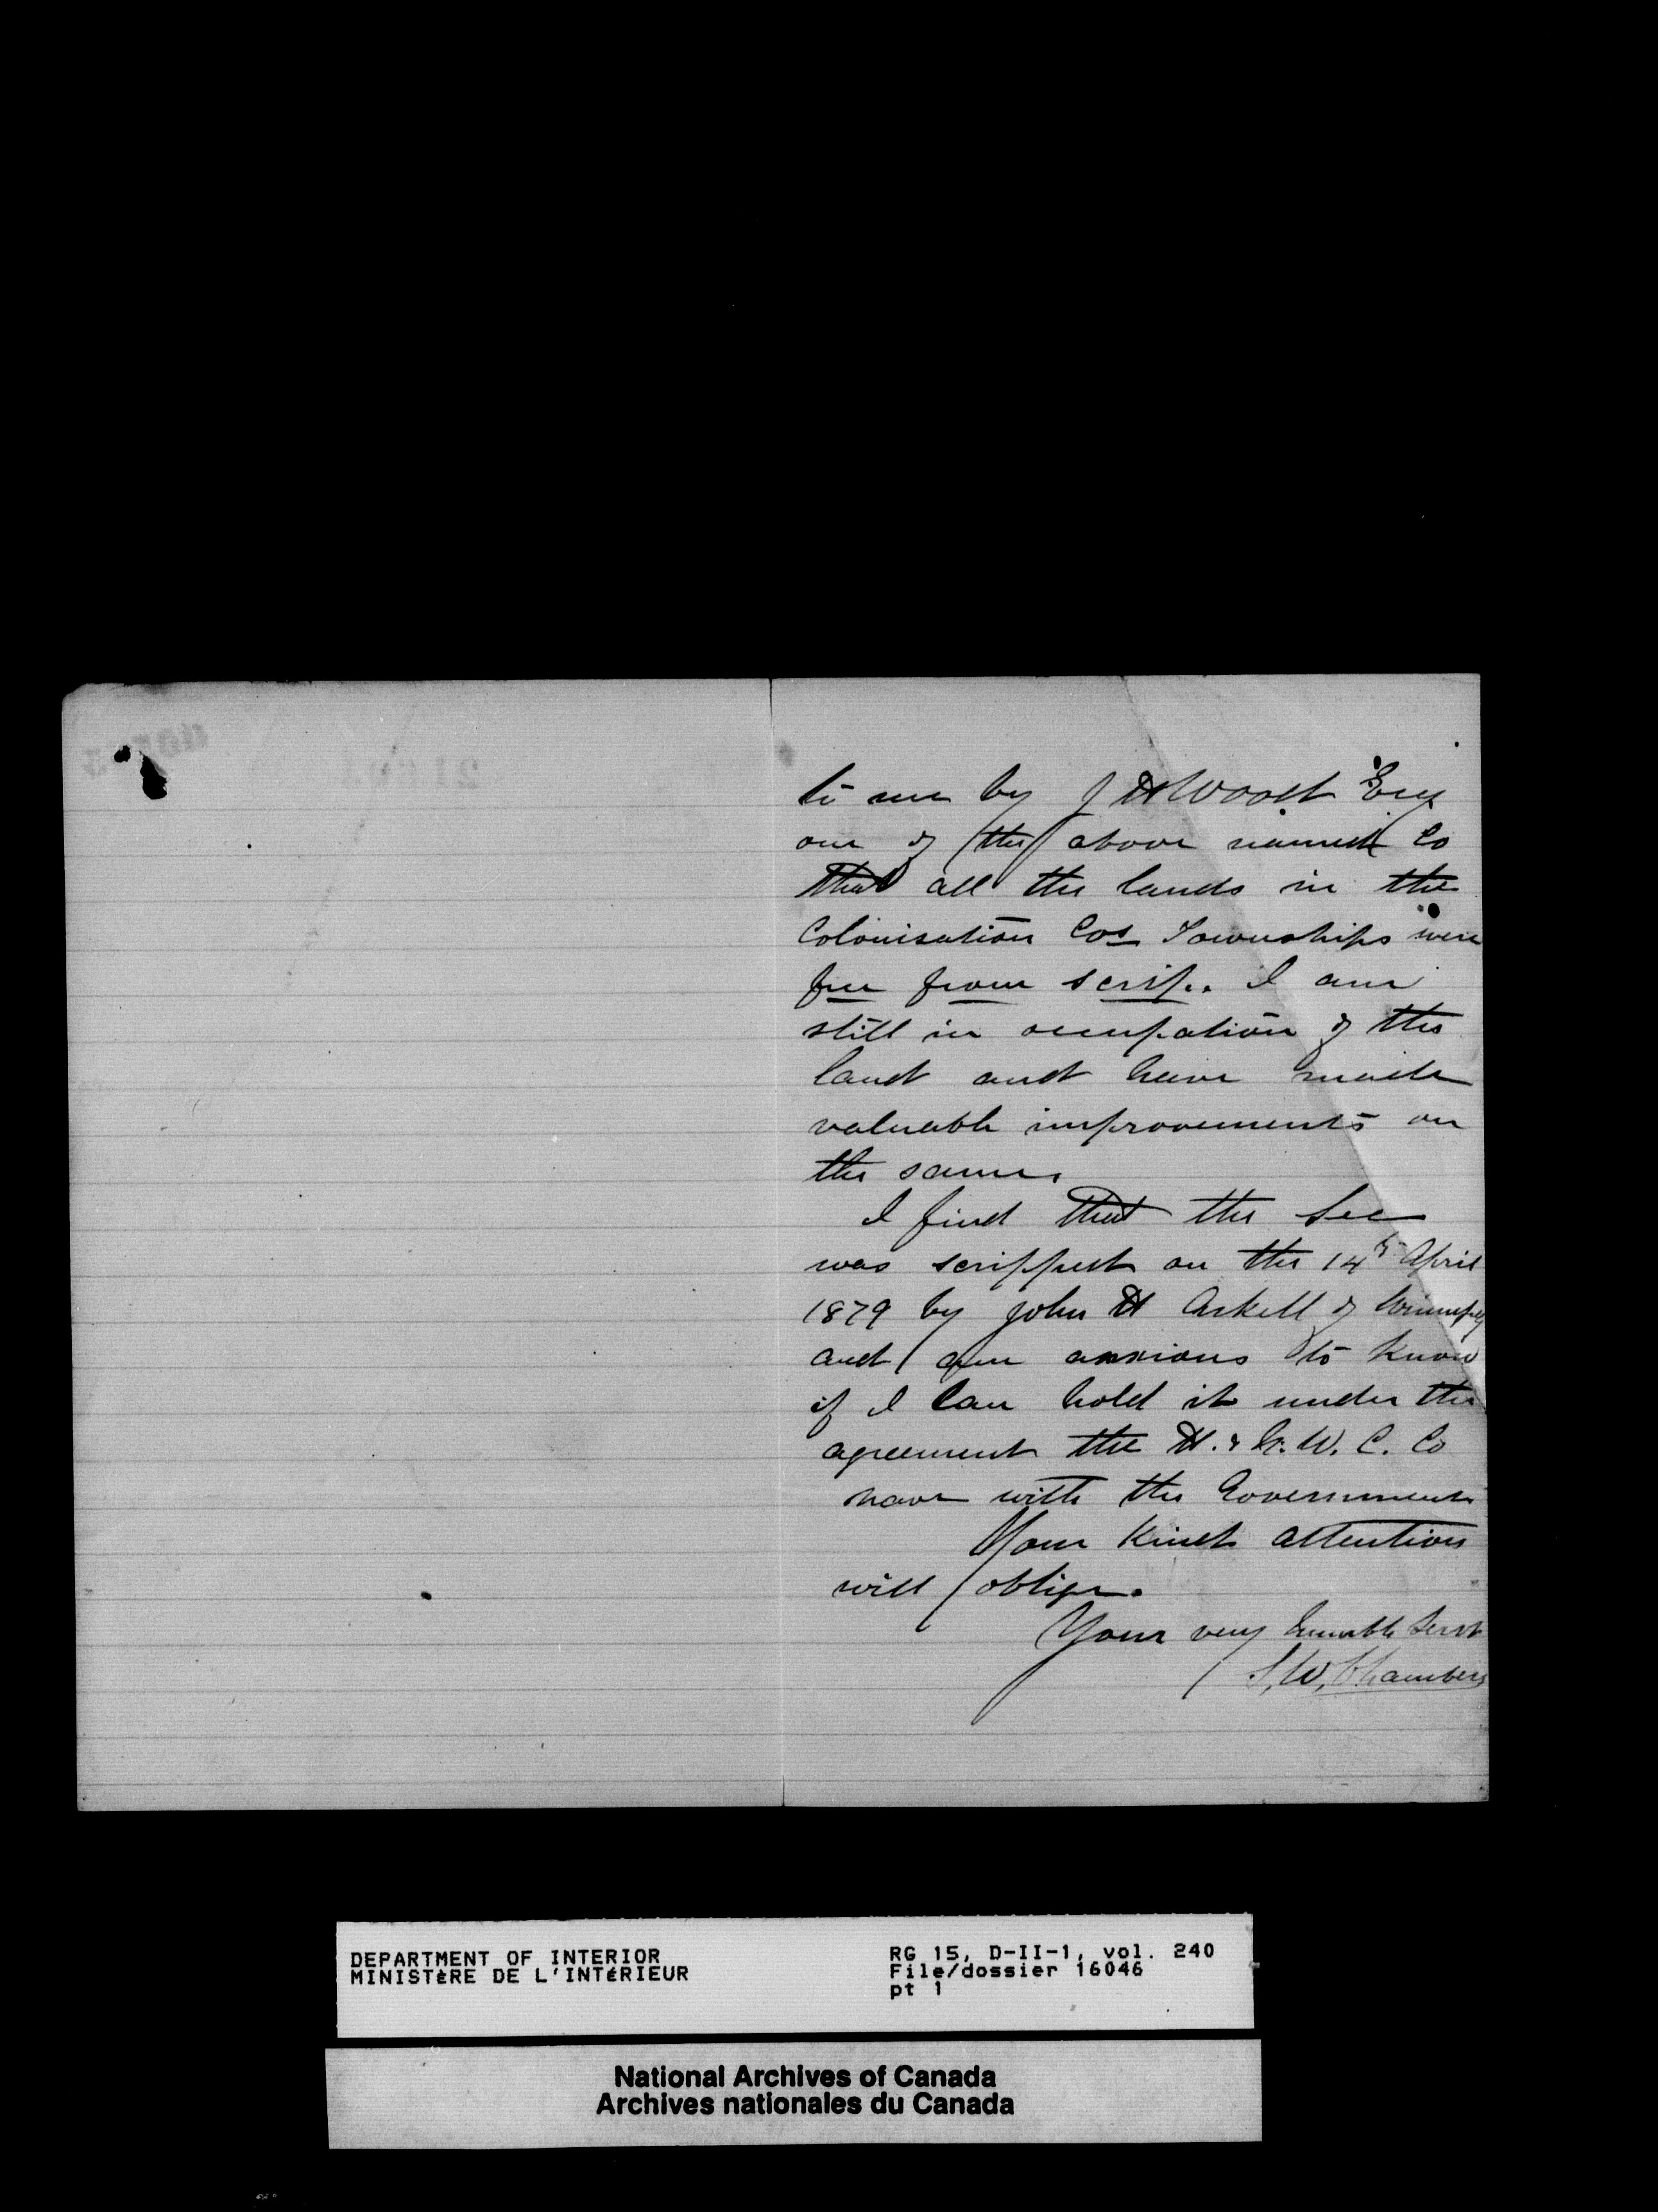 to me by J H Wood Esq
one of the above named Co
that all the lands in the
Colonisation Cos Townships were
free from scrip. I am
still in occupation of the
land and have made
valuable improvements on
the same.
I find that the Sec
was scripped on the 14th April
1879 by John H Askell of Winnipeg
and am anxious to know
if I can hold it under the
agreement the H. & N. W. C. Co
have with the Government
Your kind attention
will oblige.
Your very humble Servt
S. W. Chambers
DEPARTMENT OF INTERIOR
MINISTÈRE DE L'INTÉRIEUR
RG 15, D-II-1, vol. 240
File/dossier 16046
pt 1
National Archives of Canada
Archives nationales du Canada